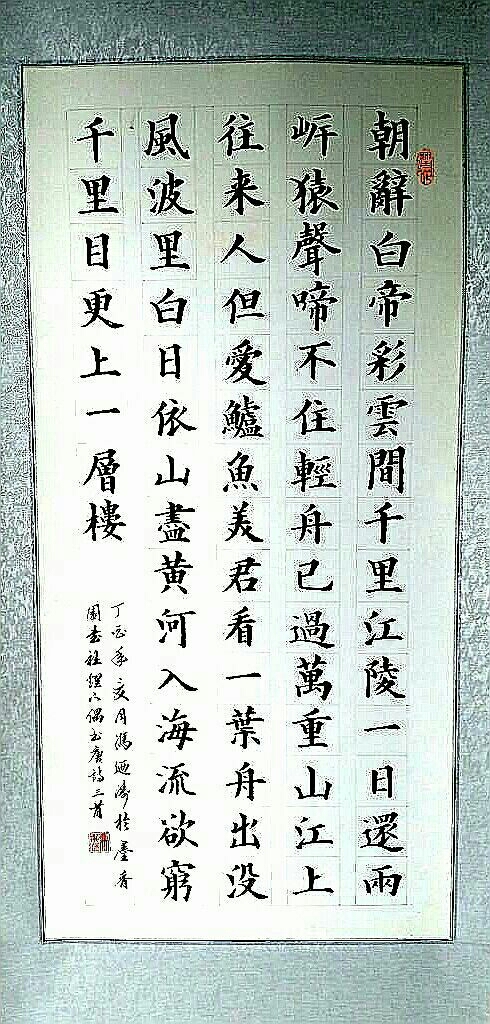 朝辭白帝彩雲間千里江陵一日還兩
岍猿聲啼不住輕舟已過萬重山江上
往来人但愛鱸魚美君看一葉舟出没
風波里白日依山盡黄河入海流欲窮
千里目更上一層樓
丁酉年亥月馮迺於墨香
園偶书唐詩三首